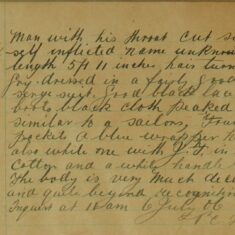 Man with his throat cut
self inflicted name unknown
length 5ft 11 inches hair turn
grey dressed in a fairly good
serge suit Good black lace
boots black cloth peaked
similar to a sailors
pockets a blue wrapper
also white one with J. H in
Cotton and a white handle
The body is very much dec
and quite beyond recognition
Inquest at 10 am 6 July 06